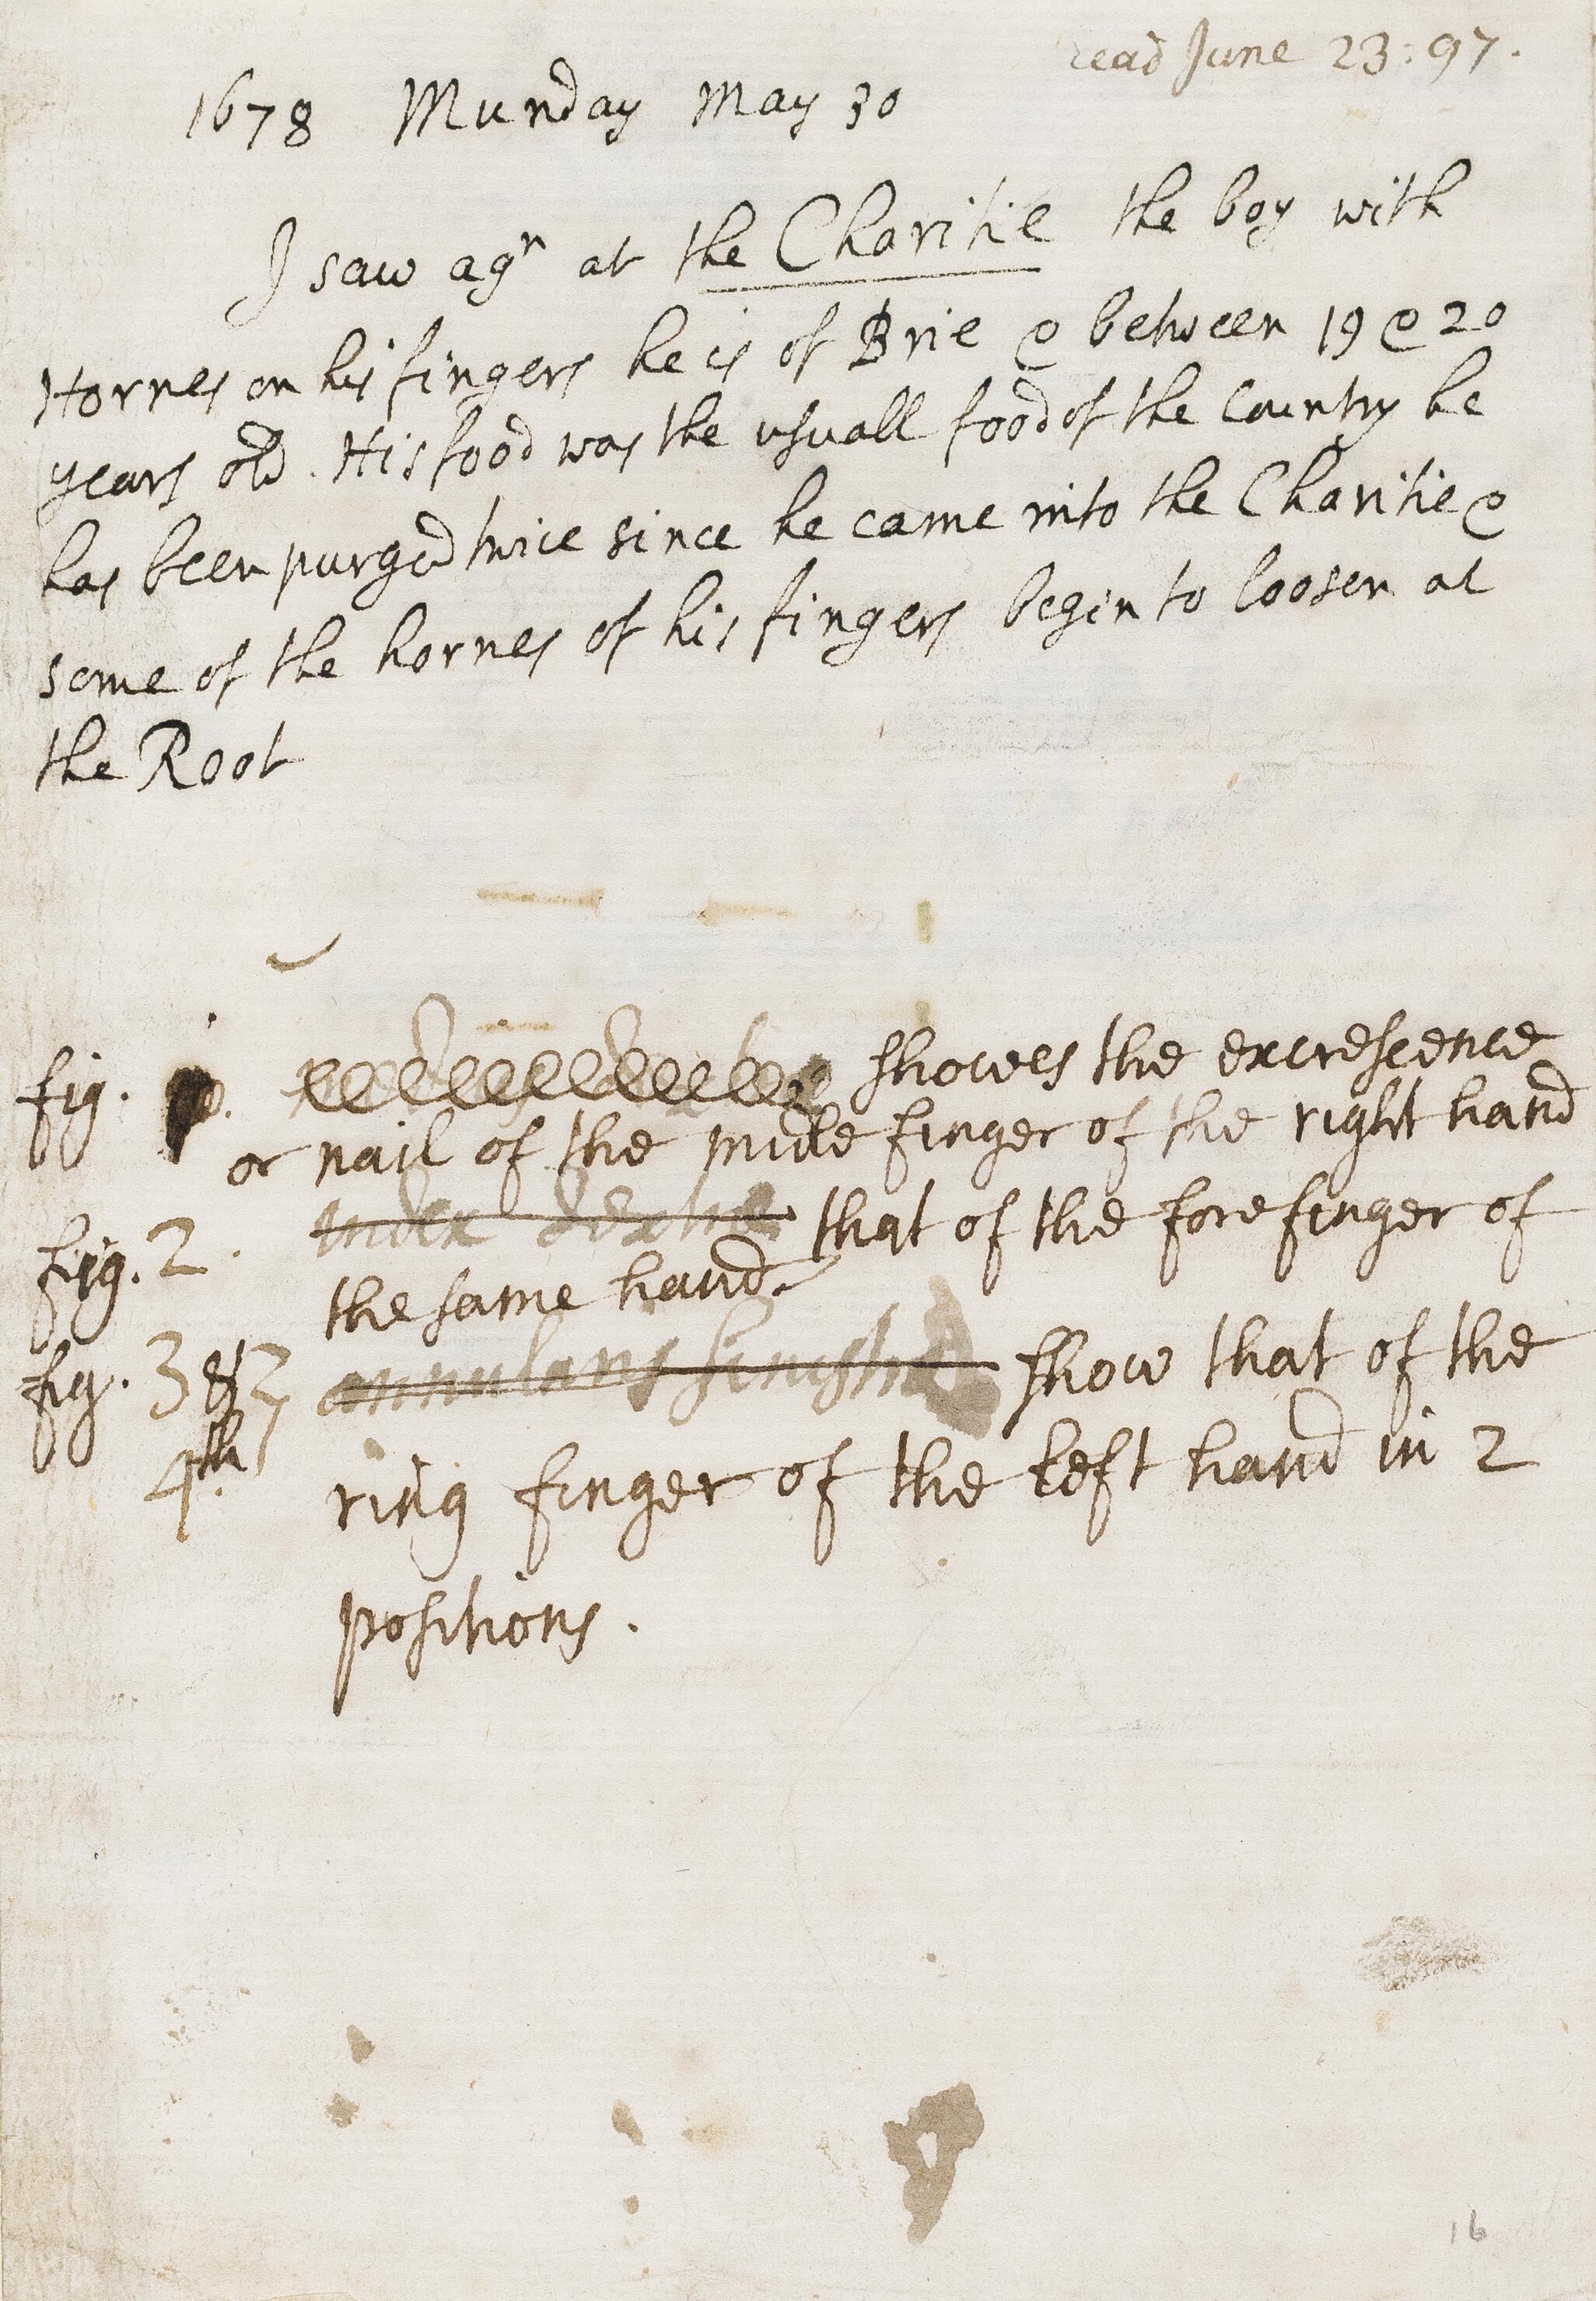 read June 23: 97.
1678 Munday May 30
I saw agn at the Charitie the boy with
Hornes on his fingers he is of Brie & between 19 & 20
years old. His food was the usuall food of the Country he
has been purged twice since he came into the Charitie &
some of the hornes of his fingers begin to loosen at
the Root
fig. showes the excrescence
or nail of the midle finger of the right hand
fig. 2. index dextre that of the fore finger of
the same hand.
fig. 3 & annularis sinistre show that of the
4th ring finger of the left hand in 2
positions.
16